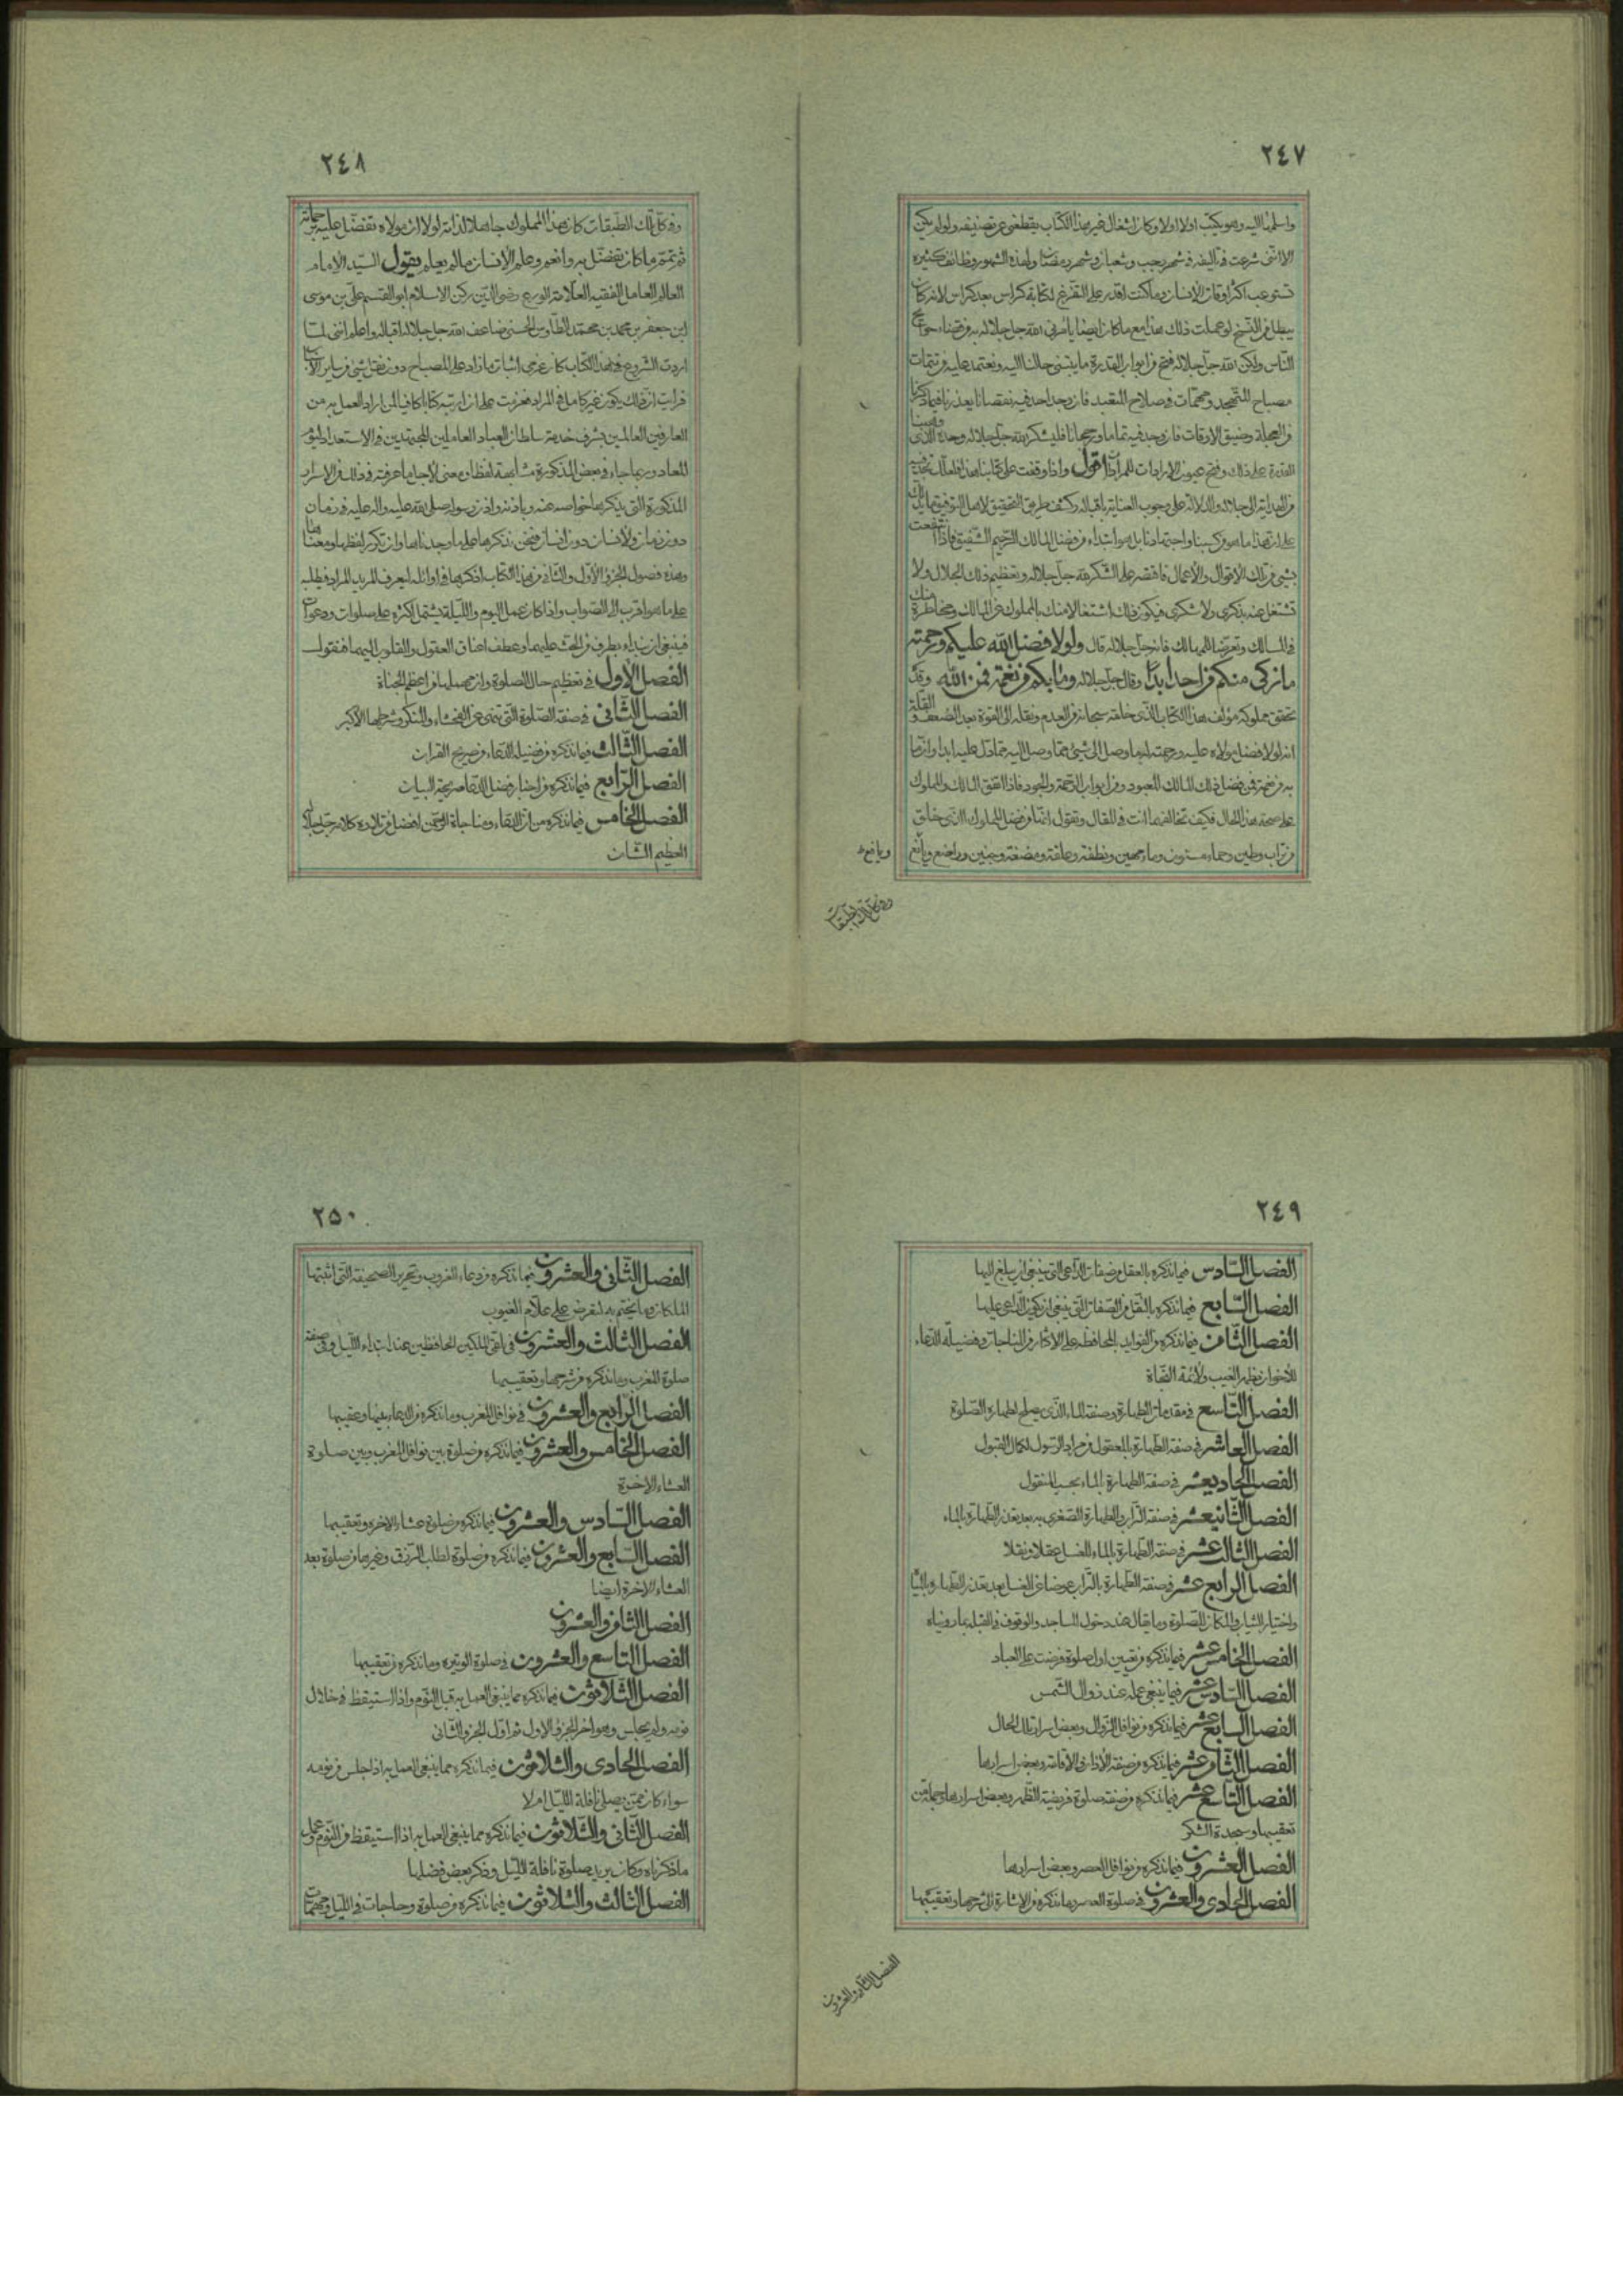 ٢٤٧
واسلمنا اليه وهو يكتب اولا اولا وكان اشغال غير هذا الكتاب يقطعني عن تصنيفه ولو لم يكن
الا انني شرعت في تاليفه في شهر رجب وشعبان وشهر رمضان ولهذه الشهور وظائف كثيره
تستوعب اكثر اوقات الانسان وما كنت اقدر على التفرغ لكتابة كراس بعد كراس لانه كان
يبطل من النسخ لو عملت ذلك هذا مع ما كان ايضا يامرني الله جل جلاله به من قضاء حوائج
الناس ولكن الله جل جلاله فتح من ابواب القدرة ما ينتهي حالنا اليه ونعتمد عليه من تتمات
مصباح المتهجد ومهمات في صلاح المتعبد فان وجد احد فيه نقصانا يعذرنا فيما ذكرنا
من العجلة وضيق الاوقات فان وجد فيه تماما ورجحانا فليشكر الله جل جلاله وحده الذي وهبنا
القدرة على ذلك وفتح عيون الارادات للمرادات اقول واذا وقفت على كتابنا هذا فلعلك تجد فيه
من الهداية الى جلاله والدلالة على وجوب العناية باقباله وكشف طريق التحقيق لاهل التوفيق ما يدلك
على ان هذا ما هو من كسبنا واجتهادنا بل هو ابتداء من فضل المالك الرحيم الشفيق فاذا انتفعت
بشيء من تلك الاقوال والاعمال فاقتصر على الشكر لله جل جلاله وتعظيم ذلك الجلال ولا
تشتغل عنه بذكري ولا شكري فيكون ذلك اشتغالا منك بالمملوك عن المالك ومخاطرة منك
في المسالك وتعرضا للمهالك فانه جل جلاله قال ولولا فضل الله عليكم ورحمته
ما زكى منكم من احد ابدا وقال جل جلاله وما بكم من نعمة فمن الله وقد
تحقق مملوكه مؤلف هذا الكتاب الذي خلقه سبحانه من العدم ونقله الى القوة بعد الضعف والقلة
انه لولا فضل مولاه عليه ورحمته لم وصل الى شيء مما وصل اليه مما دل عليه ابدا وان ما
به من نعمة فمن فضل ذلك المالك المعبود ومن ابواب الرحمة والجود فاذا اتفق المالك والمملوك
على صحة هذا الحال فكيف تخالفهما انت في المقال وتقول انما من فضل المملوك الذي خلق
من تراب وطين وحماء مسنون وماء مهين ونطفة وعلقة ومضغة وجنين وراضع ويافع
ويافع
وفي كل تلك الطبقات
٢٤٨
وفي كل تلك الطبقات كان هذا المملوك جاهلا لذاته لولا ان مولاه تفضل عليه برحماته
ثم تمم ما كان تفضل به وانعم وعلم الانسان ما لم يعلم يقول السيد الامام
العالم العامل الفقيه العلامة الورع رضي الدين ركن الاسلام ابو القسم علي بن موسى
ابن جعفر بن محمد بن محمد الطاوس الحسني ضاعف الله جل جلاله اقباله واعلم انني لما
اردت الشروع في هذا الكتاب كان عزمي اثبات ما زاد على المصباح دون نقل شيء من ساير الاسباب
فرايت ان ذلك يكون غير كامل في المراد فعزمت على ان ارتبه كتابا كافيا لمن اراد العمل به من
العارفين العالمين بشرف خدمة سلطان العباد العاملين المجتهدين في الاستعداد ليوم
المعاد وربما جاء في بعض المذكورة مشابهة لفظا ومعنى لاجل ما عرفته في ذلك من الاسرار
المذكورة التي يذكرها خواصه عنه وباذنه واذن رسوله صلى الله عليه واله عليه في زمان
دون زمان ولانسان دون انسان فنحن نذكرها على ما وجدناها وان تكرر لفظها ومعناها
وهذه فصول الجزء الاول والثاني من هذا الكتاب اذكرها في اوائله ليعرف المريد المراد فيطلبه
على ما هو اقرب الى الصواب واذا كان عمل اليوم والليلة يشتمل اكثره على صلوات ودعوات
فينبغي ان نبداء بطرف من الحث عليهما وعطف اعناق العقول والقلوب اليهما فنقول
الفصل الاول في تعظيم حال الصلوة وان مهملها من اعظم الجناة
الفصل الثاني في صفة الصلوة التي تنهى عن الفحشاء والمنكر وشرطها الاكبر
الفصل الثالث فيما نذكره من فضيلة الدعاء من صريح القران
الفصل الرابع فيما نذكره من اخبار فضل الدعاء صريحة البيان
الفصل الخامس فيما نذكره من ان الدعاء ومناجاة الرحمن افضل من تلاوة كلامه جل جلاله
العظيم الشان
٢٤٩
الفصل السادس فيما نذكره بالعقل من صفات الداعي التي ينبغي ان يبلغ اليها
الفصل السابع فيما نذكره بالنقل من الصفات التي ينبغي ان يكون الداعي عليها
الفصل الثامن فيما نذكره من الفوايد بالمحافظة على الاكثار من المناجات وفضيلة الدعاء
للاخوان بظهر الغيب ولائمة النجاة
الفصل التاسع في مقدمات الطهارة وصفة الماء الذي يصلح لطهارة الصلوة
الفصل العاشر في صفة الطهارة بالمعقول من مراد الرسول لكمال القبول
الفصل الحاديعشر في صفة الطهارة بالماء بحسب المنقول
الفصل الثانيعشر في صفة التراب والطهارة الصغرى به بعد تعذر الطهارة بالماء
الفصل الثالث عشر في صفة الطهارة بالماء للغسل عقلا ونقلا
الفصل الرابع عشر في صفة الطهارة بالتراب عوضا عن الغسل بعد تعذر الطهارة بالمياه
واختيار الثياب والمكان للصلوة وما يقال عند دخول المساجد والوقوف في القبلة بما رويناه
الفصل الخامس عشر فيما نذكره من تعيين اول صلوة فرضت على العباد
الفصل السادس عشر فيما ينبغي عمله عند زوال الشمس
الفصل السابع عشر فيما نذكره من نوافل الزوال وبعض اسرار تلك الحال
الفصل الثامن عشر فيما نذكره من صفة الاذان والاقامة وبعض اسرارهما
الفصل التاسع عشر فيما نذكره من صفة صلوة فريضة الظهر وبعض اسرارها وجملة من
تعقيبها وسجدة الشكر
الفصل العشرون فيما نذكره من نوافل العصر وبعض اسرارها
الفصل الحادي والعشرون في صلوة العصر وما نذكره من الاشارة الى شرحها وتعقيبها
الفصل الثاني والعشرون
٢٥٠
الفصل الثاني والعشرون فيما نذكره من دعاء الغروب وتحرير الصحيفة التي اثبتها
الملكان وما يختم به لتعرض على علام الغيوب
الفصل الثالث والعشرون في تلقي الملكين الحافظين عند ابتداء الليل وفي صفة
صلوة المغرب وما نذكره من شرحها وتعقيبها
الفصل الرابع والعشرون في نوافل المغرب وما نذكره من الدعاء بينها وعقيبها
الفصل الخامس والعشرون فيما نذكره من صلوة بين نوافل المغرب وبين صلوة
العشاء الاخرة
الفصل السادس والعشرون فيما نذكره من صلوة عشاء الاخرة وتعقيبها
الفصل السابع والعشرون فيما نذكره من صلوة لطلب الرزق وغيرها من صلوة بعد
العشاء الاخرة ايضا
الفصل الثامن والعشرون
الفصل التاسع والعشرون في صلوة الوتيره وما نذكره من تعقيبها
الفصل الثلاثون فيما نذكره مما ينبغي العمل به قبل النوم واذا استيقظ في خلال
نومه ولم يجلس وهو اخر الجزء الاول ثم اول الجزء الثاني
الفصل الحادي والثلاثون فيما نذكره مما ينبغي العمل به اذا جلس من نومه
سواء كان ممن يصلي نافلة الليل ام لا
الفصل الثاني والثلاثون فيما نذكره مما ينبغي العمل به اذا استيقظ من النوم وعمل
ما ذكرناه وكان يريد صلوة نافلة الليل وذكر بعض فضلها
الفصل الثالث والثلاثون فيما نذكره من صلوة وحاجات في الليل ومهمات